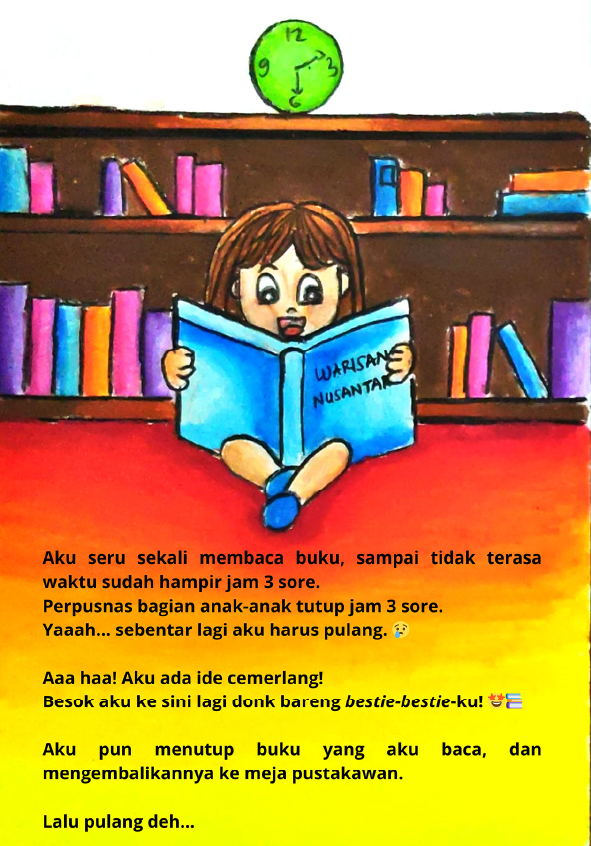 12
9 3
6
WARISAN
NUSANTAR
Aku seru sekali membaca buku, sampai tidak terasa
waktu sudah hampir jam 3 sore.
Perpusnas bagian anak-anak tutup jam 3 sore.
Yaaah... sebentar lagi aku harus pulang. 😢
Aaa haa! Aku ada ide cemerlang!
Besok aku ke sini lagi donk bareng bestie-bestie-ku! 🤩📚
Aku pun menutup buku yang aku baca, dan
mengembalikannya ke meja pustakawan.
Lalu pulang deh...